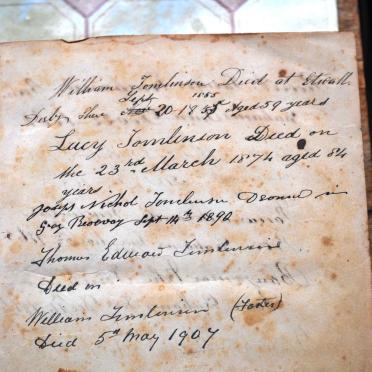 William Tomlinson Died at Etwall
Sept 1855
Derby Shire 20 1855 Aged 59 years
Lucy Tomlinson Died on
the 23rd March 1874 aged 84
years.
Joseph Nichol Tomlinson Drowned in
Sept 14th 1890
Thomas Edward Tomlinson
Died in
William Tomlinson (Foster)
Died 5th May 1907